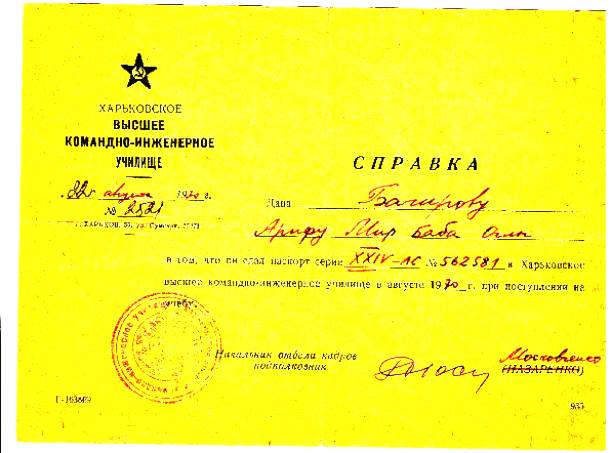 ХАРЬКОВСКОЕ
ВЫСШЕЕ
КОМАНДНО-ИНЖЕНЕРНОЕ
УЧИЛИЩЕ
СПРАВКА
августа 1970 г.
№ 2521
г. ХАРЬКОВ,
Дана Багирову
Арифу Мир Баба Оглы
в том, что он сдал паспорт серии XXIV-ЛС № 562581 в Харьковское
высшее командно-инженерное училище в августе 1970 г. при поступлении на
учебу.
Начальник отдела кадров
подполковник
Московченко
(НАЗАРЕНКО)
Г-103869